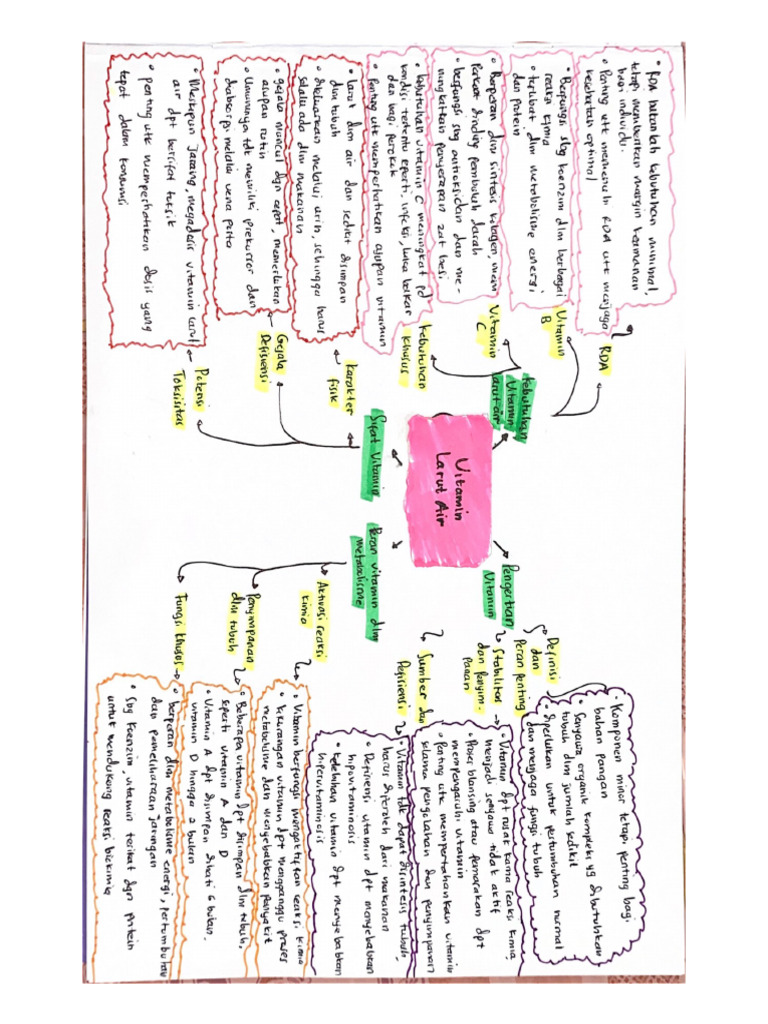 Vitamin
Larut Air
Pengertian
Vitamin
Definisi
dan
Peran penting
• Komponen minor tetapi penting bagi
bahan pangan
• Senyawa organik kompleks yg dibutuhkan
tubuh dlm jumlah sedikit
• Diperlukan untuk pertumbuhan normal
dan menjaga fungsi tubuh
Stabilitas
dan Penyim-
panan
• Vitamin dpt rusak karna reaksi kimia,
menjadi senyawa tidak aktif
• Proses blansing atau pemanasan dpt
mempengaruhi vitamin
• Penting utk mempertahankan vitamin
selama pengolahan dan penyimpanan
Sumber dan
Defisiensi
• Vitamin tdk dapat disintesis tubuh,
harus diperoleh dari makanan
• Defisiensi vitamin dpt menyebabkan
hipovitominosis
• Kelebihan vitamin dpt menyebabkan
hipervitominosis
Peran vitamin dlm
metabolisme
Aktivasi reaksi
kimia
• Vitamin berfungsi mengaktifkan reaksi kimia
• Kekurangan vitamin dpt mengganggu proses
metabolisme dan menyebabkan penyakit
Penyimpanan
dlm tubuh
• Beberapa vitamin dpt disimpan dlm tubuh,
seperti vitamin A dan D
• Vitamin A dpt disimpan dihati 6 bulan,
vitamin D hingga 2 bulan
Fungsi khusus
• berperan dlm metabolisme energi, pertumbuhan
dan pemeliharaan jaringan
• Sbg koenzim, vitamin teribat dgn protein
untuk mendukung reaksi biokimia
Kebutuhan
Vitamin
larut air
RDA
• RDA bukanlah kebutuhan minimal,
tetapi memberikan margin keamanan
bagi individu.
• Penting utk memenuhi RDA utk menjaga
kesehatan optimal
Vitamin
B
• Berfungsi sbg koenzim dlm berbagai
reaksi kimia
• terlibat dlm metabolisme energi
dan protein
Vitamin
C
• Berperan dlm sintesis kolagen, mem
perkuat dinding pembuluh darah
• berfungsi sbg antioksidan dan me-
ningkatkan penyerapan zat besi
Kebutuhan
Khusus
• Kebutuhan vitamin C meningkat pd
kondisi tertentu eperti, infeksi, luka bakar
dan bagi perokok
• Penting utk memperhatikan asupan vitamin
Sifat Vitamin
Karakter
fisik
• Larut dlm air dan sedikit disimpan
dlm tubuh
• Dikeluarkan melalui urin, sehingga harus
selalu ada dlm makanan
Gejala
Defisiensi
• Gejala muncul dgn cepat, memerlukan
asupan rutin
• Umumnya tdk memiliki prekursor dan
diabsorpsi melalui vena porta
Potensi
Toksisitas
• Meskipun jarang, megadosis vitamin larut
air dpt bersifat toksik
• Penting utk memperhatikan dosis yang
tepat dalam konsumsi